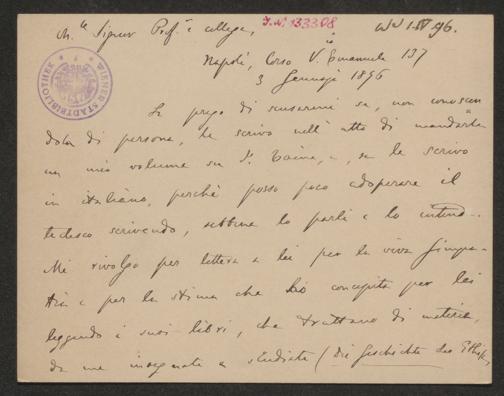 Ch.<sup>mo</sup> Signor Prof.<sup>e</sup> e collega,
J.N. 133308
Napoli, Corso V. Emanuele 137
3 Gennajo 1896
WIENER STADTBIBLIOTHEK
La prego di scusarmi se, non conoscen
dola di persona, Le scrivo nell'atto di mandarLe
un mio volume su H. Taine, e, se Le scrivo
in italiano, perchè posso poco adoperare il
tedesco scrivendo, sebbene lo parli e lo intenda.
Mi rivolgo per lettera a lei per la viva simpa-
tia e per la stima che ho concepita per lei
leggendo i suoi libri, che trattano di materia
da me insegnata e studiata (Die Geschichte der Ethik,